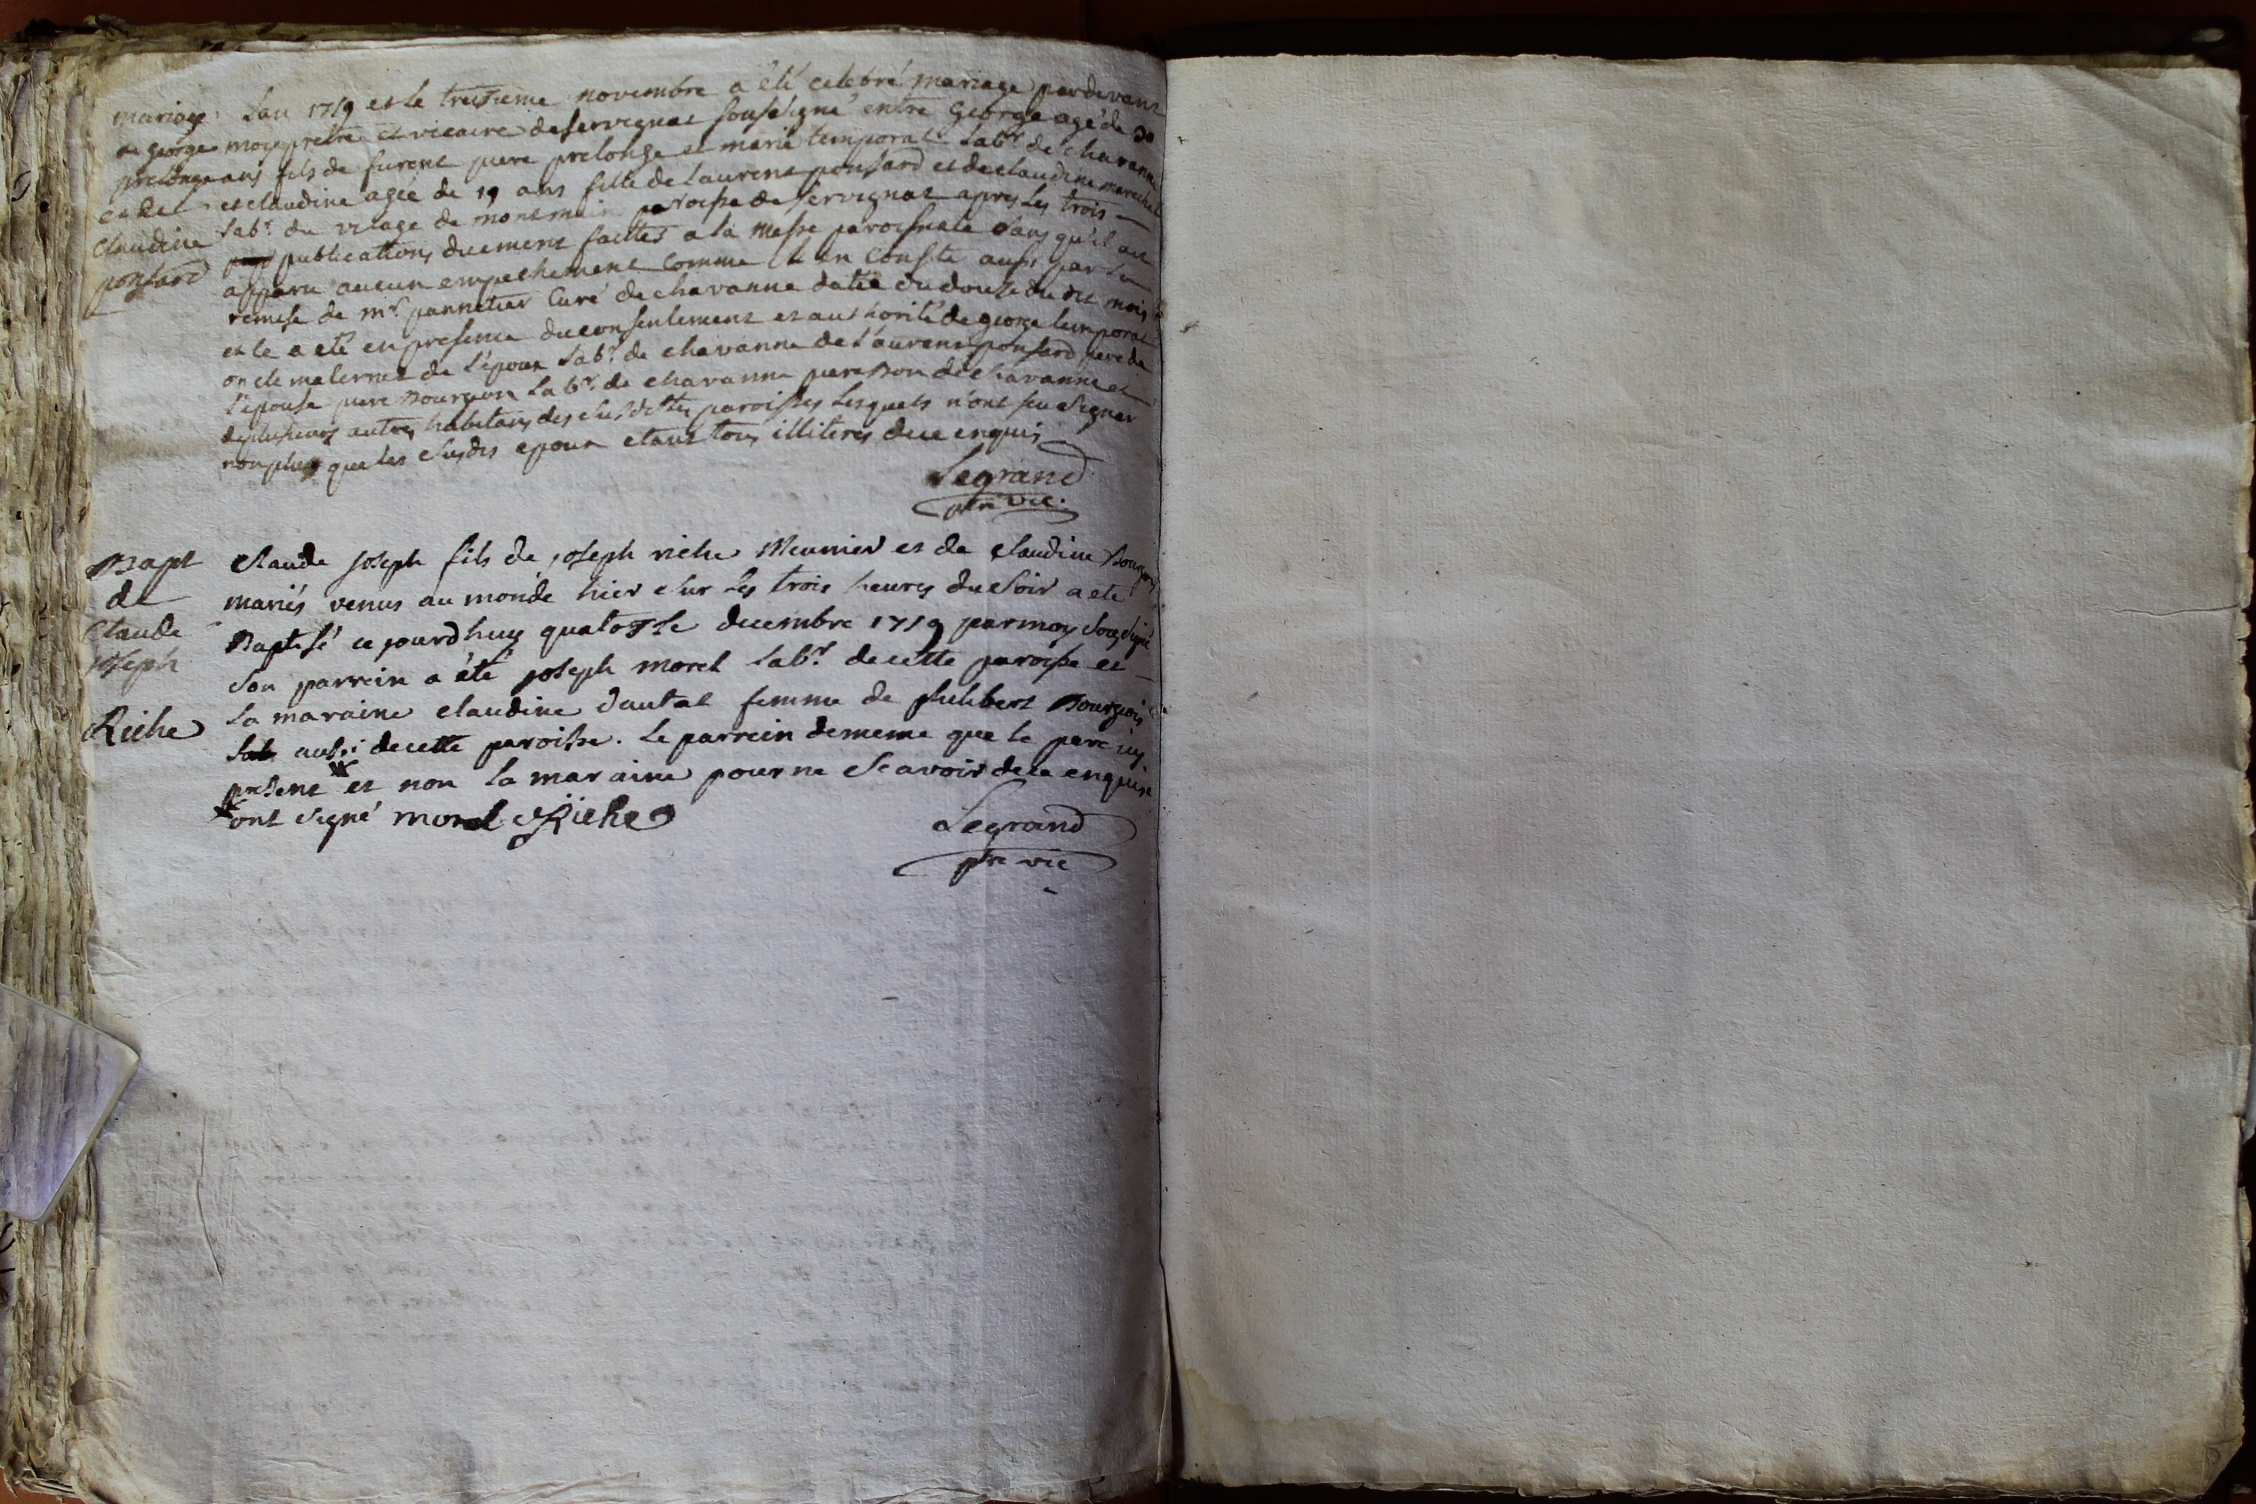 mariage
de george
prelonge
et de
Claudine
ponsard
L'an 1759 et le treisieme novembre a été celebré mariage pardevant
moy pretre et vicaire de servignat soussigné entre George agé de 30
ans fils de furent piere prelonge et marie temporal labr. de chavanne
et claudine agée de 19 ans fille de laurent ponsard et de claudine marechal
labr. du vilage de montmain paroisse de servignat apres les trois
publications duement faittes a la messe paroissiale sans qu'il ait
apparu aucun empechement comme il en conste aussi par la
remise de mr. pannetier curé de chavanne datée du douse du dit mois
et le a eté en presence du consentement et authorité de george temporal
oncle maternel de l'epoux labr. de chavanne de laurent ponsard pere de
l'epouse piere Bourgeon labr. de chavanne piere Bon de chavanne et
de plusieurs autres habitans des susdittes paroisses lesquels n'ont seu signer
non plus que les susdis epoux etant tous illiteres de ce enquis
Legrand
ptre vic.
Bapt
de
Claude
joseph
Riche
Claude joseph fils de joseph riche Meunier et de Claudine
mariés venus au monde hier sur les trois heures du soir a eté
Baptisé ce jourd'huy quatorse decembre 1759 par moy sousigné
son parrein a été joseph morel labr. de cette paroisse et
la maraine claudine dautal femme de philibert Bourgeois
aussi de cette paroisse. le parrein de meme que le pere icy
present * et non la maraine pour ne scavoir de ce enquise
* ont signé morel Riche
Legrand
ptre vic